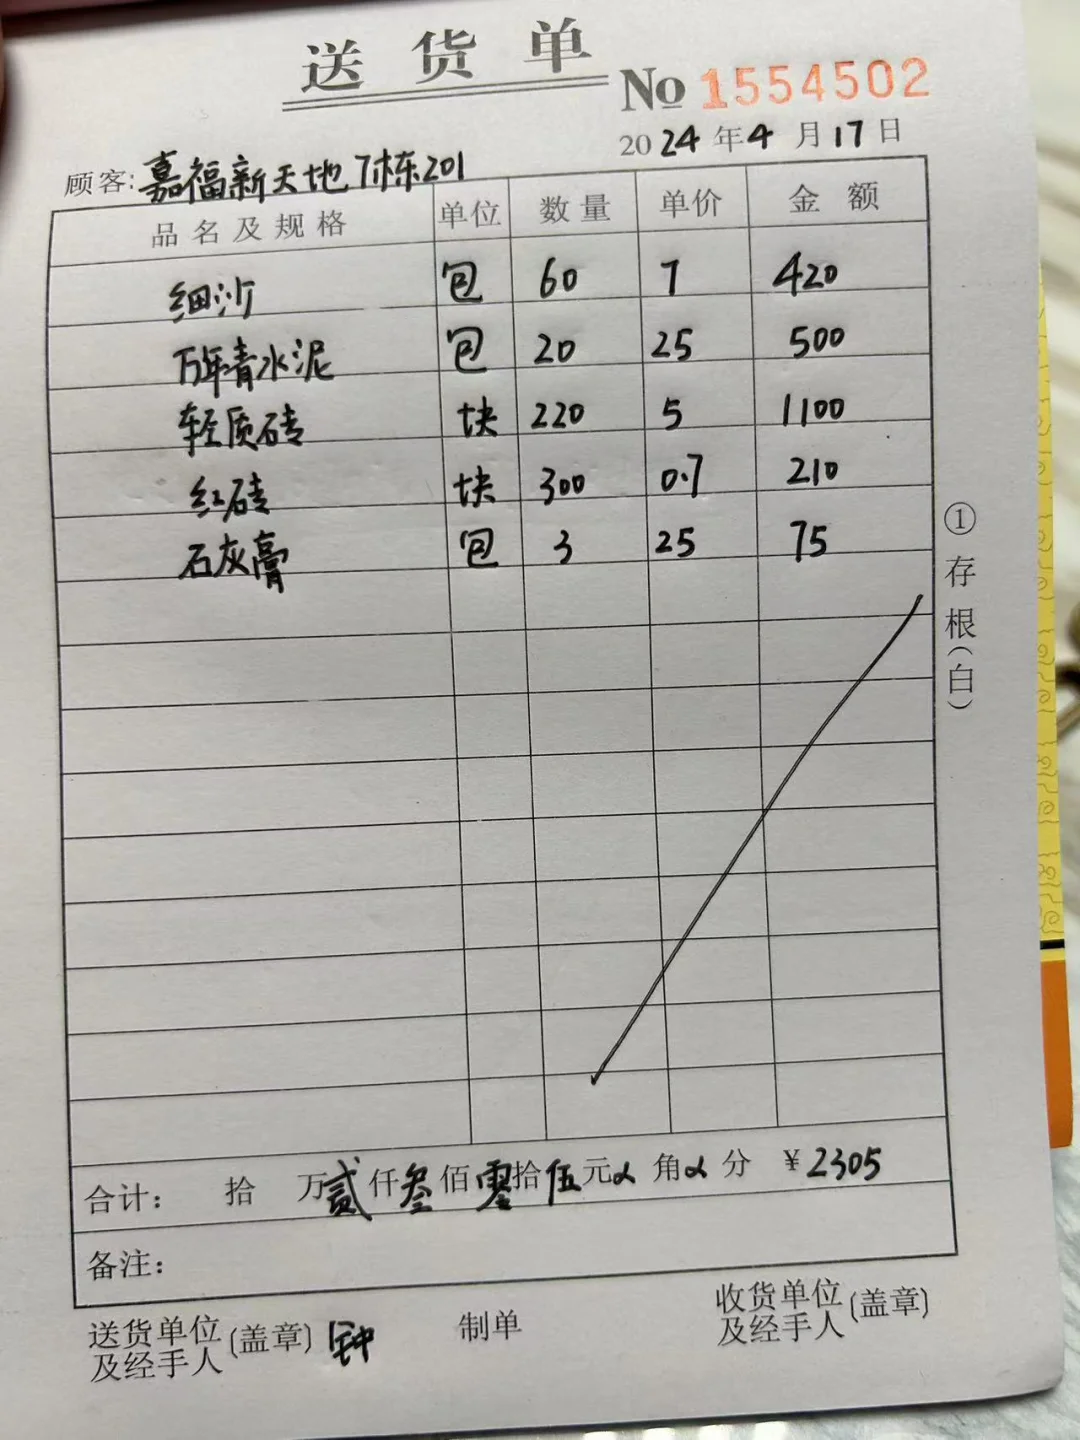 送货单
No 1554502
2024年4月17日
顾客:嘉福新天地7栋201
品名及规格 单位 数量 单价 金额
细沙 包 60 7 420
万年青水泥 包 20 25 500
轻质砖 块 220 5 1100
红砖 块 300 0.7 210
石灰膏 包 3 25 75
①存根(白)
合计: 拾 万贰仟叁佰零拾伍元 角 分 ¥2305
备注:
送货单位及经手人(盖章)钟 制单 收货单位及经手人(盖章)